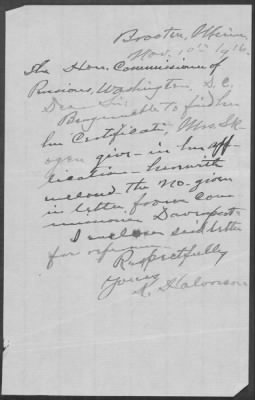 Brooten, Minn,
Nov. 10th 1916.
The Hon. Commissioner of
Pensions, Washington, D.C.
Dear Sir:
Being unable to find
her Certificate, Mrs. Sk-
ogen give in her app-
lication herewith
enclosed the no. given
in letter from Com-
missioner Davenport.
I enclose said letter
for reference
Respectfully
Yours
Halvorson